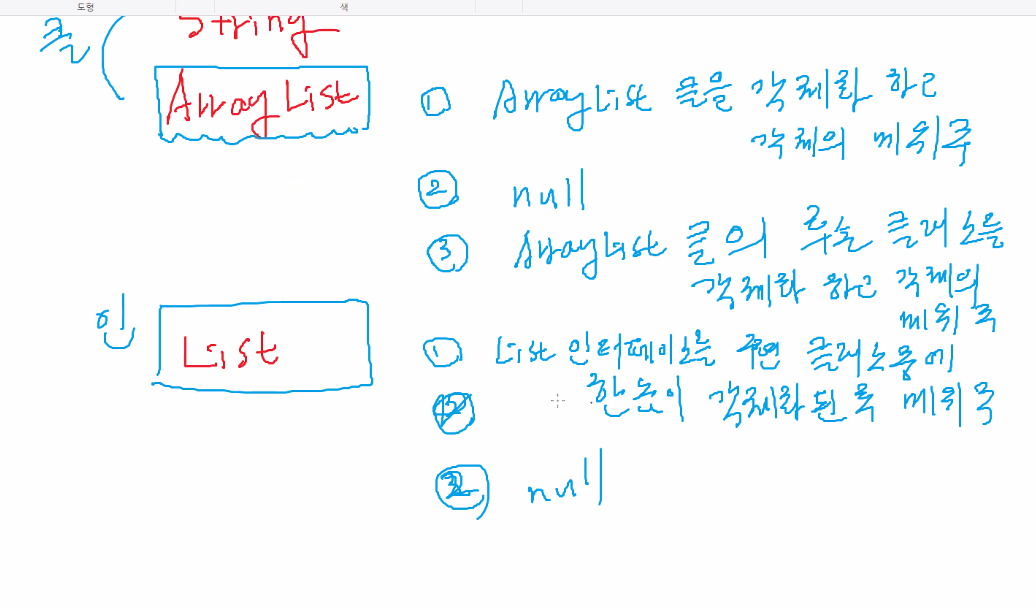 도형 색
클 String
ArrayList ① ArrayList 클을 객체화 하고
객체의 메위주
② null
③ ArrayList 클의 후손 클래스를
객체화 하고 객체의
메위주
인
List ① List 인터페이스를 구현 클래스중에
② 한놈이 객체화된 메위주
② null